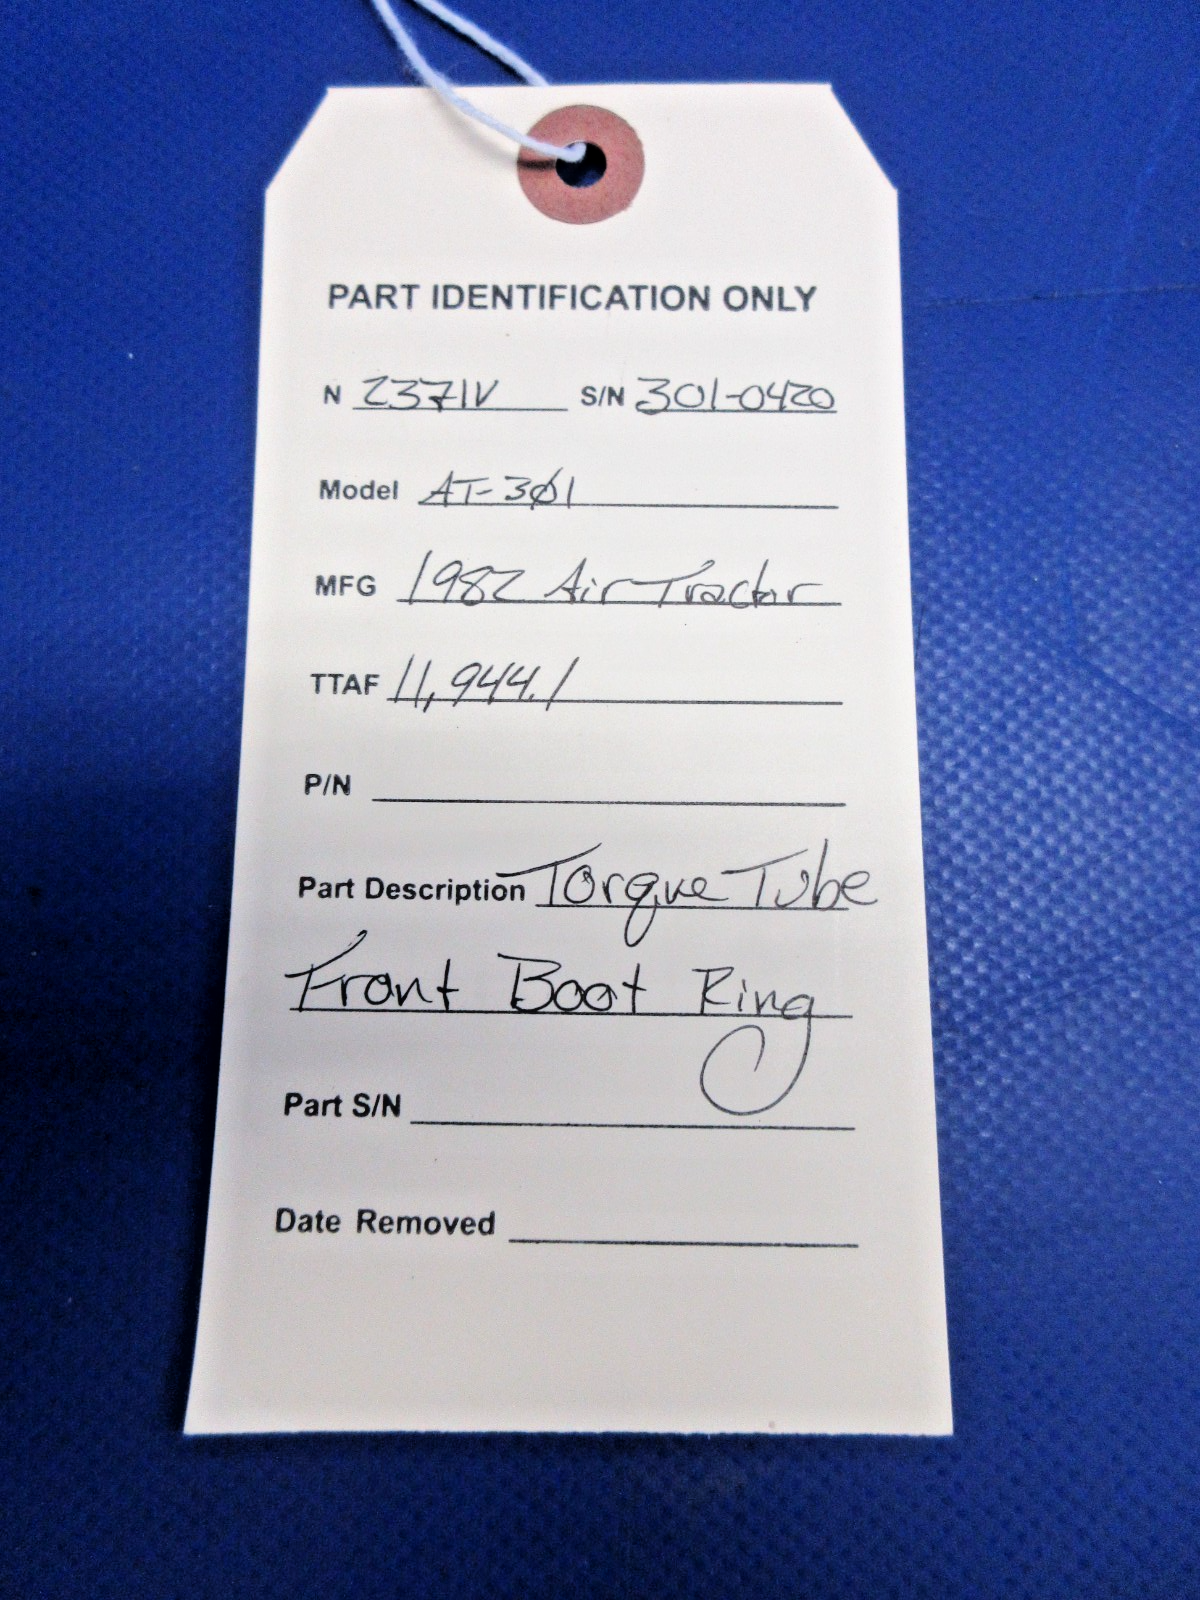 PART IDENTIFICATION ONLY
N 2371V S/N 301-0420
Model AT-3Ø1
MFG 1982 Air Tractor
TTAF 11,944.1
P/N
Part Description Torque Tube
Front Boot Ring
Part S/N
Date Removed